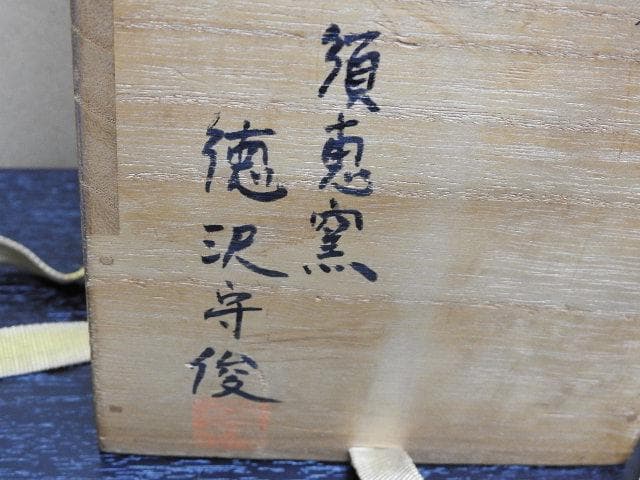 須恵窯
徳沢守俊